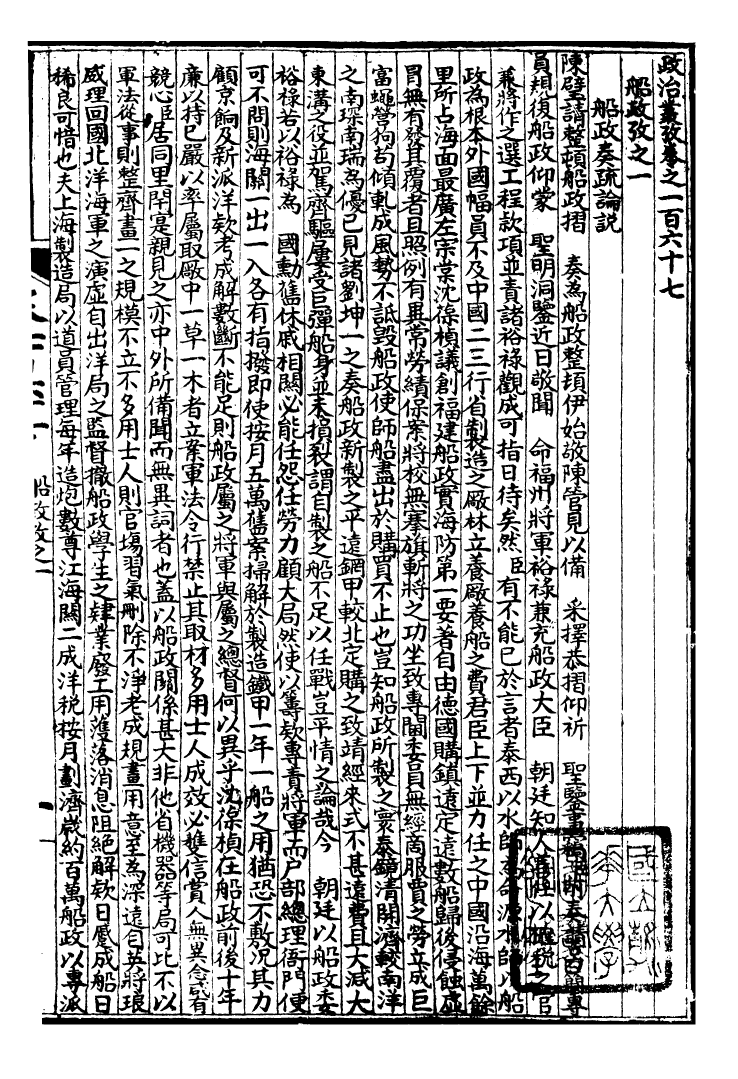 政治叢攷卷之一百六十七
船政攷之一
船政奏疏論説
陳璧請整頓船政摺　奏為船政整頓伊始敬陳管見以備　采擇恭摺仰祈　聖鑒事
員規復船政仰蒙　聖明洞鑒近日敬聞　命福州將軍裕祿兼充船政大臣　朝廷知人
兼將作之選工程款項並責諸裕祿觀成可指日待矣然臣有不能已於言者泰西以水師為命源水師以船
政為根本外國幅員不及中國二三行省製造之厰林立養厰養船之費君臣上下並力任之中國沿海萬餘
里所占海面最廣左宗棠沈葆楨議創福建船政實海防第一要著自由德國購鎮遠定遠數船歸後侵蝕虛
冒無有發其覆者且照例有異常勞績保案將校無搴旗斬將之功坐致專閫委員無經商服賈之勞立成巨
富蠅營狗苟傾軋成風勢不詆毀船政使師船盡出於購買不止也豈知船政所製之寰泰鏡清開濟較南洋
之南琛南瑞為優已見諸劉坤一之奏船政新製之平遠鋼甲較北定購之致靖經來式不甚遠費且大減大
東溝之役並駕齊驅屢受巨彈船身並未損裂謂自製之船不足以任戰豈平情之論哉今　朝廷以船政委
裕祿若以裕祿為　國勳舊休戚相關必能任怨任勞力顧大局然使以籌款專責將軍而户部總理衙門便
可不問則海關一出一入各有指撥即使按月五萬舊案掃解於製造鐵甲一年一船之用猶恐不敷況其力
顧京餉及新派洋款老成解數斷不能足則船政屬之將軍與屬之總督何以異乎沈葆楨在船政前後十年
廉以持己嚴以率屬取厰中一草一木者立案軍法令行禁止其取材多用士人成效必進信賞人無異念皆有
競心臣居同里閈寔親見之亦中外所備聞而無異詞者也蓋以船政關係甚大非他省機器等局可比不以
軍法從事則整齊畫一之規模不立不多用士人則官場習氣刪除不淨老成規畫用意至為深遠自英將琅
威理回國北洋海軍之演虛自出洋局之監督撤船政學生之肄業廢工用濩落消息阻絶解款日蹙成船日
稀良可惜也夫上海製造局以道員管理每年造炮數尊江海關二成洋税按月劃濟歲約百萬船政以專派
船政攷之一